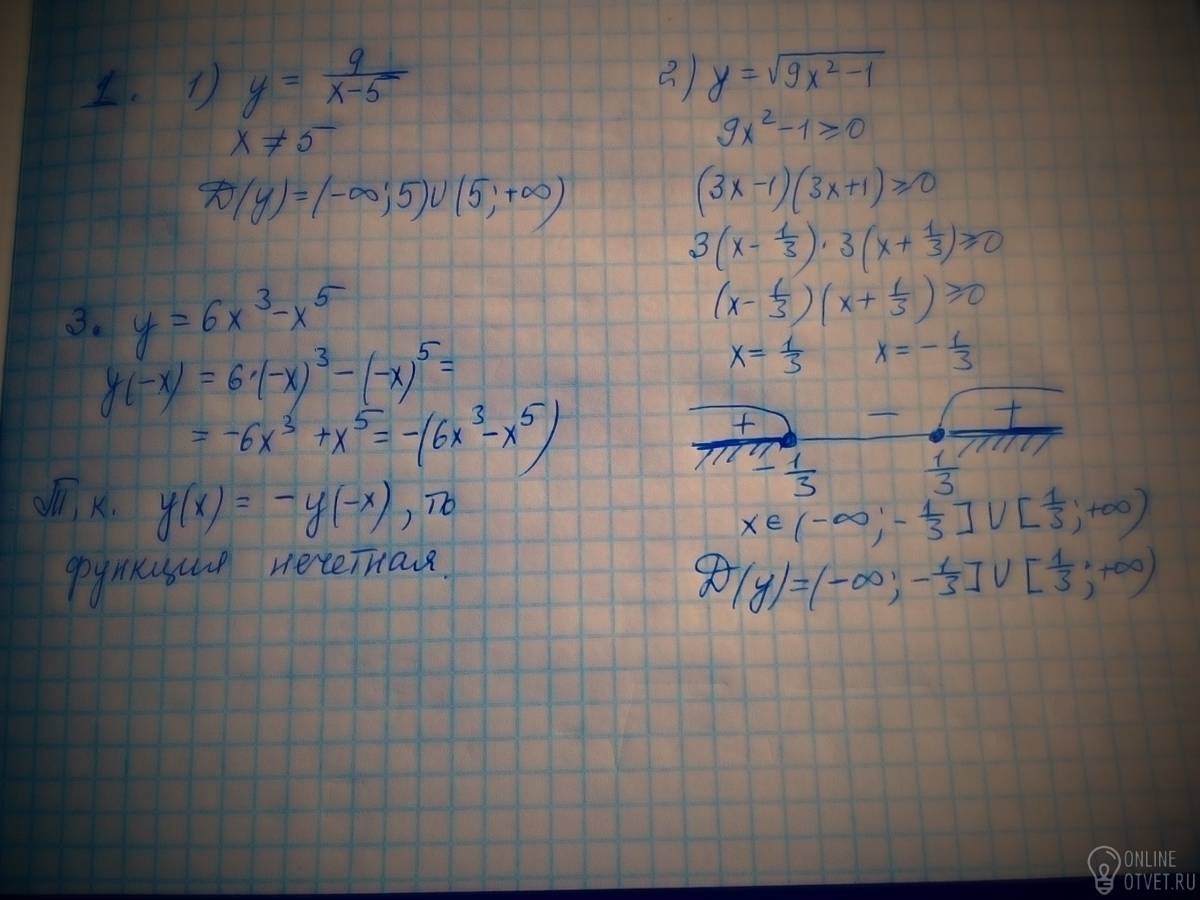 1. 1) y = 9/(x-5)
x ≠ 5
Д(y)=(-∞;5)∪(5;+∞)
3. y = 6x³-x⁵
y(-x) = 6·(-x)³-(-x)⁵=
= -6x³+x⁵=-(6x³-x⁵)
Т.к. y(x)= -y(-x), то
функция нечетная.
2) y=√(9x²-1)
9x²-1≥0
(3x-1)(3x+1)≥0
3(x-1/3)·3(x+1/3)≥0
(x-1/3)(x+1/3)≥0
x=1/3 x=-1/3
+ − +
-1/3 1/3
x∈(-∞;-1/3]∪[1/3;+∞)
Д(y)=(-∞;-1/3]∪[1/3;+∞)
ONLINE
OTVET.RU